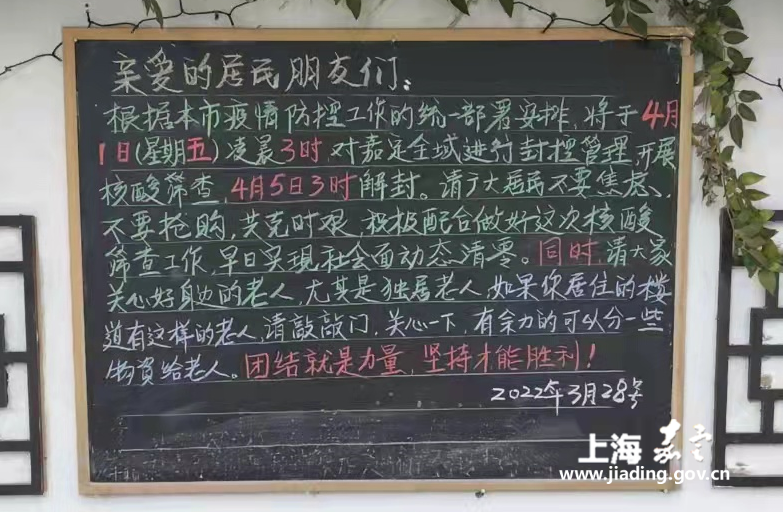 亲爱的居民朋友们：
根据本市疫情防控工作的统一部署安排，将于4月
1日(星期五)凌晨3时，对嘉定全域进行封控管理，开展
核酸筛查，4月5日3时解封。请广大居民不要焦虑、
不要抢购，共克时艰，积极配合做好这次核酸
筛查工作，早日实现社会面动态清零。同时，请大家
关心好身边的老人，尤其是独居老人，如果你居住的楼
道有这样的老人，请敲敲门，关心一下，有余力的可以分一些
物资给老人。团结就是力量，坚持才能胜利！
2022年3月28号
上海嘉定
www.jiading.gov.cn